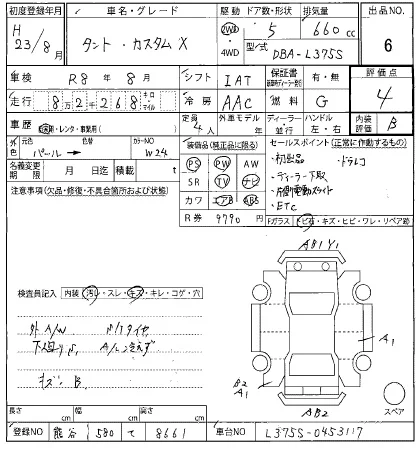 初度登録年月
車名・グレード
駆動 ドア数・形状 排気量
出品NO.
H 23/8月
タント・カスタムX
2WD 4WD
5
660 cc
6
型式 DBA-L375S
車検 R8年8月
シフト IAT
保証書 有・無
評価点
4
走行 8万2千268 キロ・マイル
冷房 AAC
燃料 G
車歴 自家用・レンタ・事業用( )
定員 4人
外車モデル 年
ディーラー・並行
ハンドル 左・右
内装評価 B
外色 元色 パール
色替
カラーNO W24
装備品(純正品に限る)
セールスポイント(正常に作動する)
名義変更期限 月 日迄
積載 t
PS PW AW
SR TV ナビ
カワ エアB ABS
R券 9790円
ドラレコ
ディーラー下取
ETC
注意事項(欠品・修復・不具合箇所および状態)
Fガラス 飛び石・キズ・ヒビ・ワレ・リペア跡
検査員記入 内装(汚レ・スレ・キズ・キレ・コゲ・穴
外A/W
キズ B
AB1 Y1
A1
B2 A1
AB2
スペア
長さ cm 幅 cm 高さ cm
登録NO 熊谷 580 て 8661
車台NO L375S-0453117